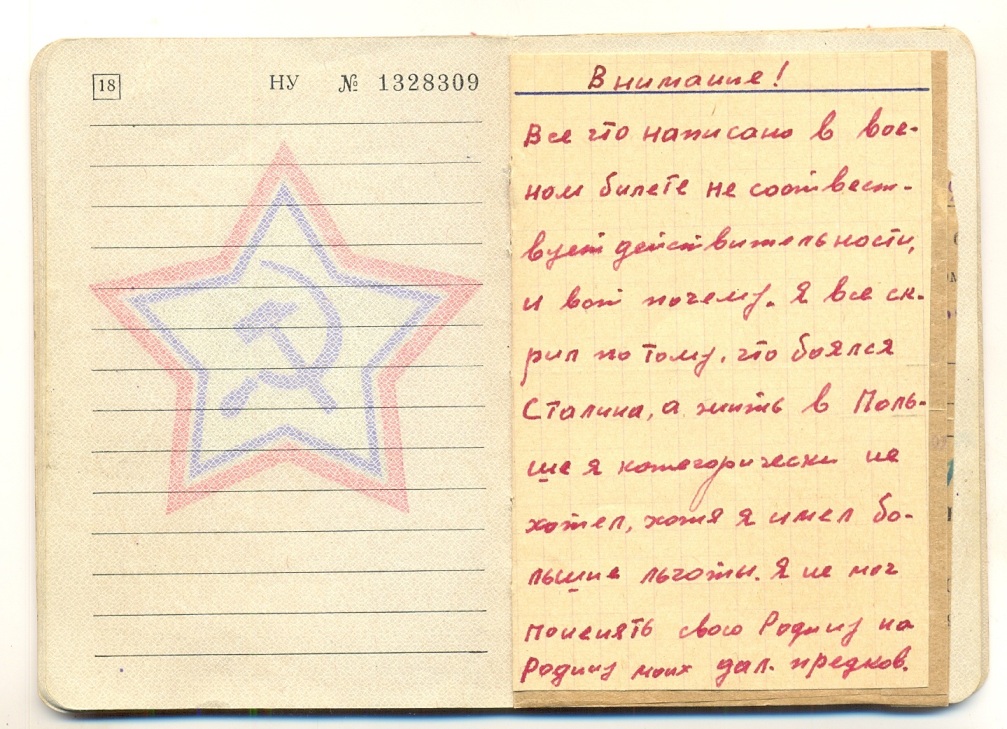 18 НУ № 1328309
Внимание!
Все что написано в воен-
ном билете не соответст-
вует действительности,
и вот почему. Я все ск-
рыл потому, что боялся
Сталина, а жить в Поль-
ше я категорически не
хотел, хотя я имел бо-
льшие льготы. Я не мог
поменять свою Родину на
Родину моих дал. предков.